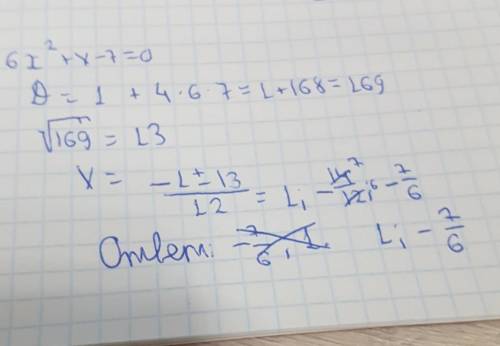 6x² + x - 7 = 0
D = 1 + 4 · 6 · 7 = 1 + 168 = 169
√169 = 13
x = (-1 ± 13)/12 = 1; -14/12; -7/6
Ответ: -7/6, 1 1; -7/6